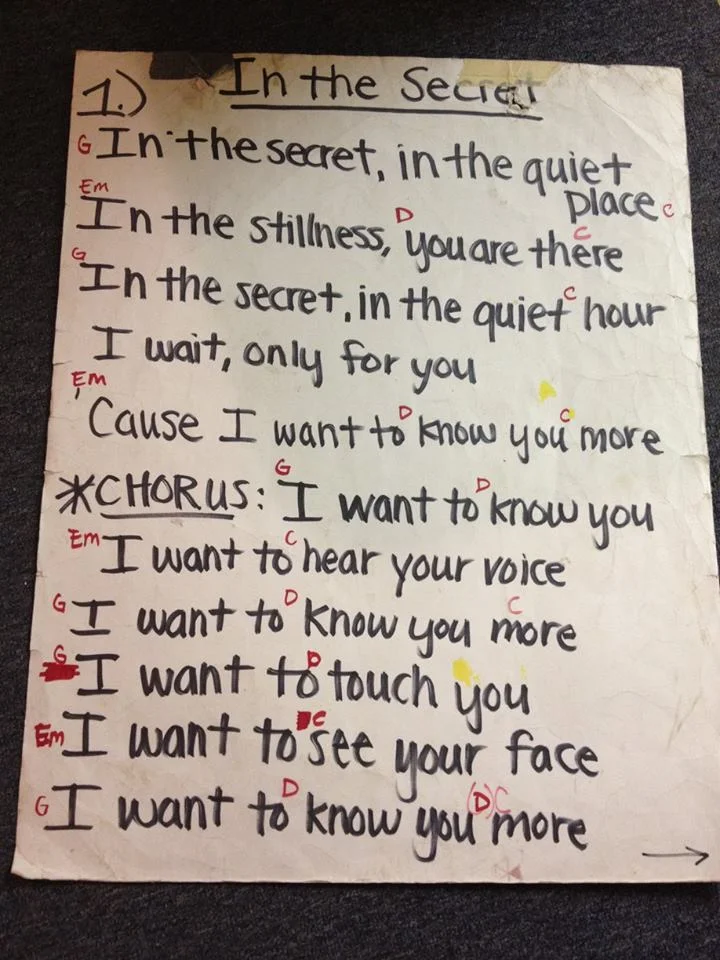 1.) In the Secret
G In the secret, in the quiet
place C
Em D C
In the stillness, you are there
G C
In the secret, in the quiet hour
I wait, only for you
Em D C
'Cause I want to know you more
G D
*CHORUS: I want to know you
Em C
I want to hear your voice
G D C
I want to know you more
G D
I want to touch you
Em C
I want to see your face
G D (D) C
I want to know you more
→